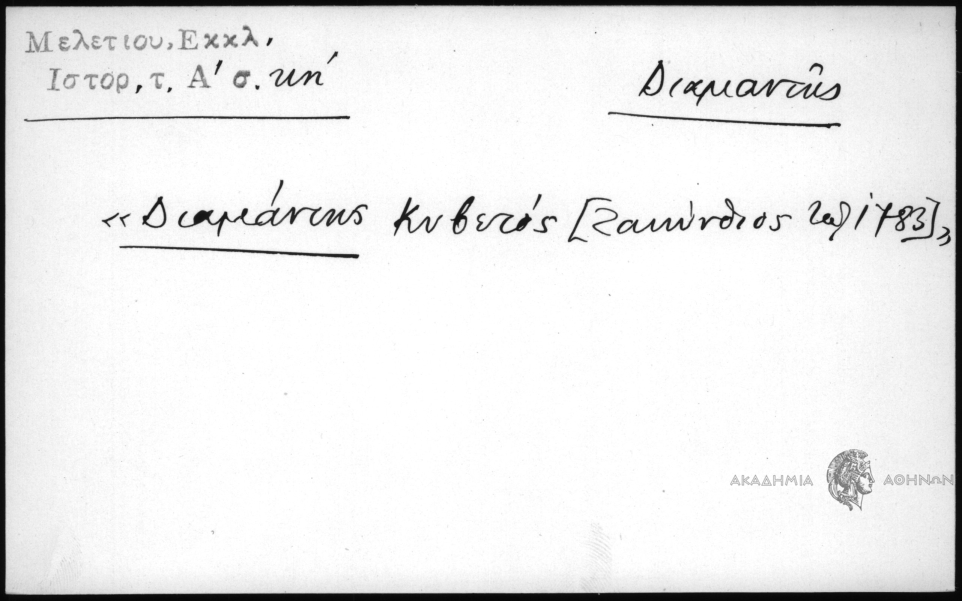 Μελετιου, Εκκλ.
Ιστορ, τ. Α' σ. κή
Διαμαντῆς
«Διαμάντης Κυβετός [Ζακύνθιος 1783]»
ΑΚΑΔΗΜΙΑ ΑΘΗΝΩΝ